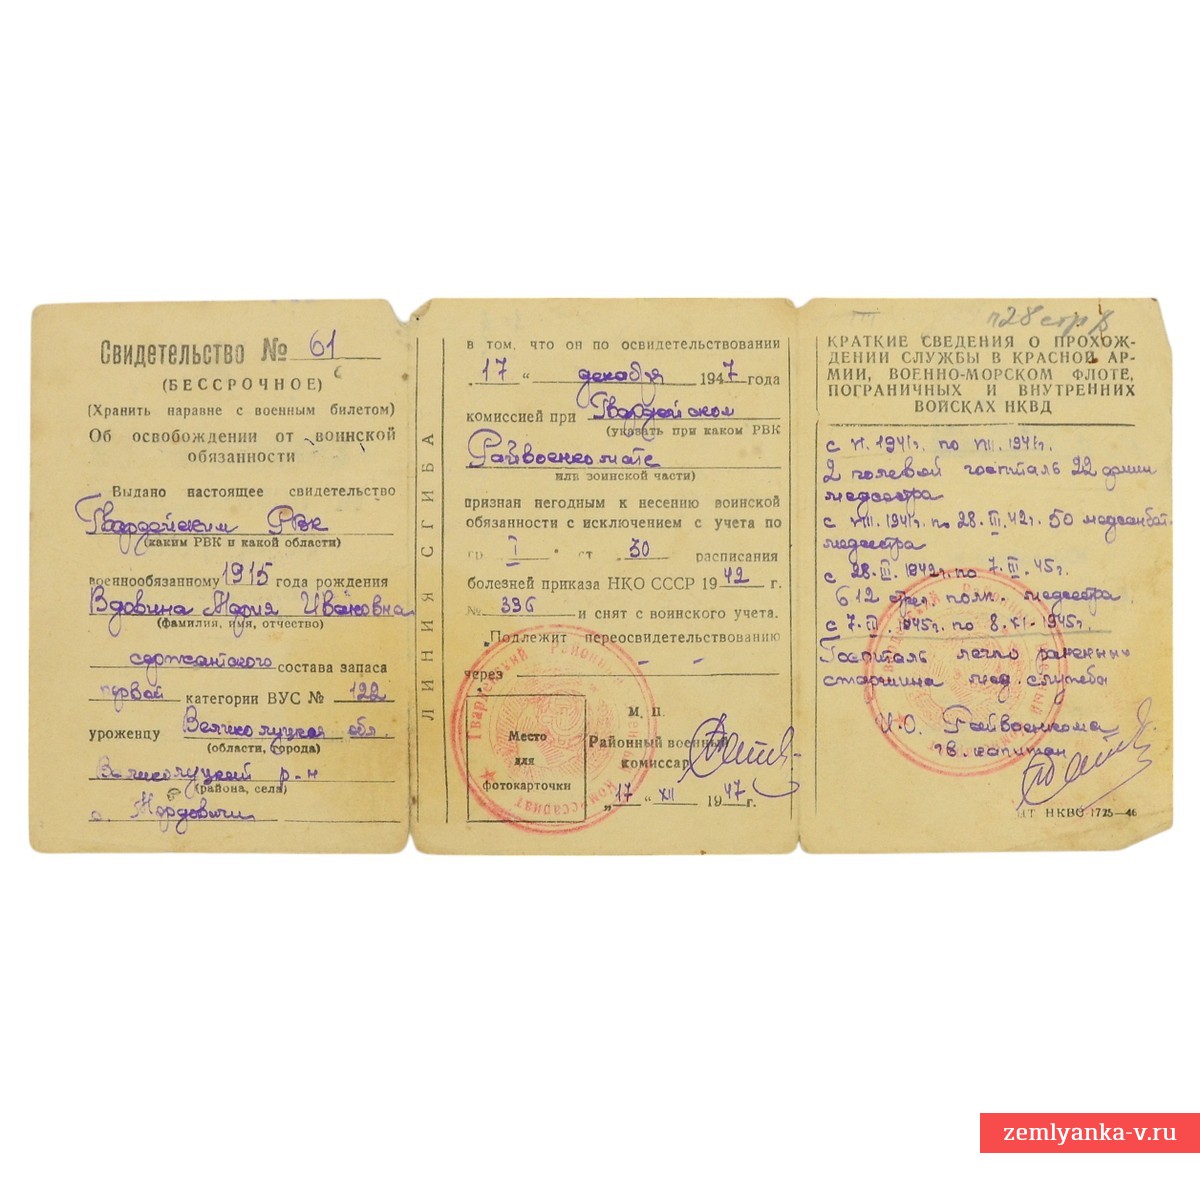 Свидетельство № 61
(БЕССРОЧНОЕ)
(Хранить наравне с военным билетом)
Об освобождении от воинской
обязанности
Выдано настоящее свидетельство
Гвардейским РВК
(каким РВК и какой области)
военнообязанному 1915 года рождения
Вдовина Мария Ивановна
(фамилия, имя, отчество)
сержантского состава запаса
первой категории ВУС № 122
уроженцу Великолуцкая обл.
(области, города)
Великолуцкий р-н
(района, села)
с. Мордовичи
ЛИНИЯ СГИБА
в том, что он по освидетельствовании
„17“ декабря 1947 года
комиссией при Гвардейском
(указать при каком РВК
Райвоенкомате
или воинской части)
признан негодным к несению воинской
обязанности с исключением с учета по
гр. I ст. 30 расписания
болезней приказа НКО СССР 1942 г.
№ 336 и снят с воинского учета.
Подлежит переосвидетельствованию
через — —
Место
для
фотокарточки
М. П.
Районный военный
комиссар
„17“ XII 1947 г.
Гвардейский Районный Военный Комиссариат
28 стр
КРАТКИЕ СВЕДЕНИЯ О ПРОХОЖ-
ДЕНИИ СЛУЖБЫ В КРАСНОЙ АР-
МИИ, ВОЕННО-МОРСКОМ ФЛОТЕ,
ПОГРАНИЧНЫХ И ВНУТРЕННИХ
ВОЙСКАХ НКВД
с VI. 1941г. по VIII. 1941г.
2 полевой госпиталь 22 армии
медсестра
с VIII. 1941г. по 28. III. 42г. 50 медсанбат.
медсестра
с 28. III. 1942г. по 7. III. 45г.
612 стрел. полк. медсестра
с 7. III. 1945г. по 8. XI. 1945г.
Госпиталь легко раненных
старшина мед. службы
И.О. Райвоенкома
гв. капитан
ШТ НКВО 1725—46
zemlyanka-v.ru